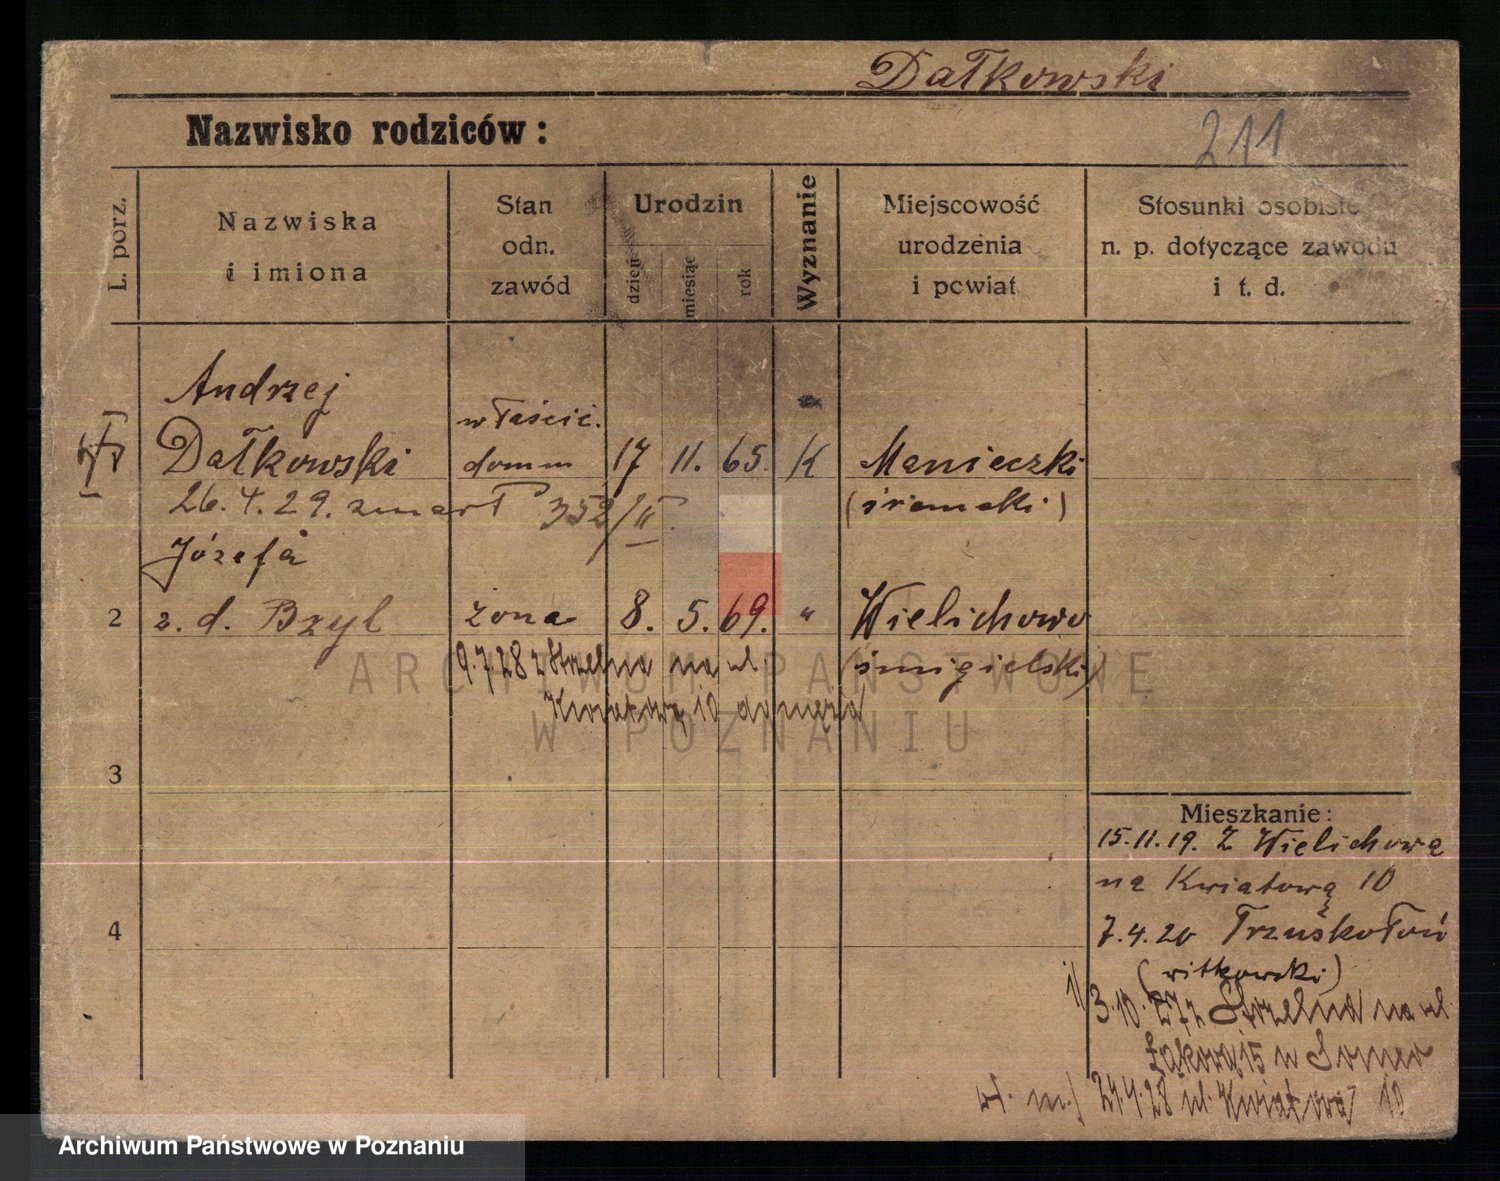 Dałkowski
Nazwisko rodziców:
211
L. porz.
Nazwiska
i imiona
Stan
odn.
zawód
Urodzin
dzień
miesiąc
rok
Wyznanie
Miejscowość
urodzenia
i powiat
Stosunki osobiste
n. p. dotyczące zawodu
i t. d.
Andrzej
Dałkowski
właścic.
domu
17 11. 65. K
Manieczki
(śremski)
26.4.29. zmarł 352/II
Józefa
2 z. d. Bzyl żona 8. 5. 69. " Wielichowo
(śmigielski)
9.7.28 z Strzelna na ul.
Kwiatową 10 do męża
3
4
Mieszkanie:
15.11.19. Z Wielichowa
na Kwiatową 10
7.4.20 Trzuskołoń
(witkowski)
1/ 3.10.27 z Strzelna na ul.
Łąkowa 15 u
24.4.28 ul. Kwiatowa 10
ARCHIWUM PAŃSTWOWE
W POZNANIU
Archiwum Państwowe w Poznaniu